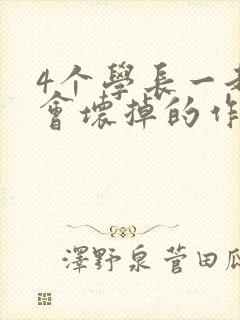 4个學長一
會壞掉的作
澤野泉 菅田